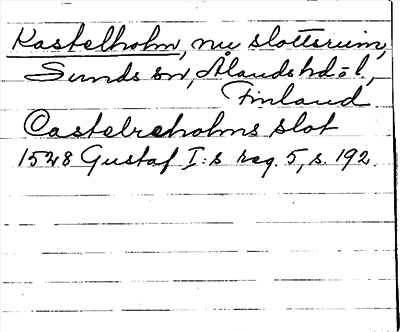 Kastelholm, nu slottsruin,
Sunds sn, Ålands hd o l,
Finland
Castelreholms slot
1528 Gustaf I:s reg. 5, s. 192.